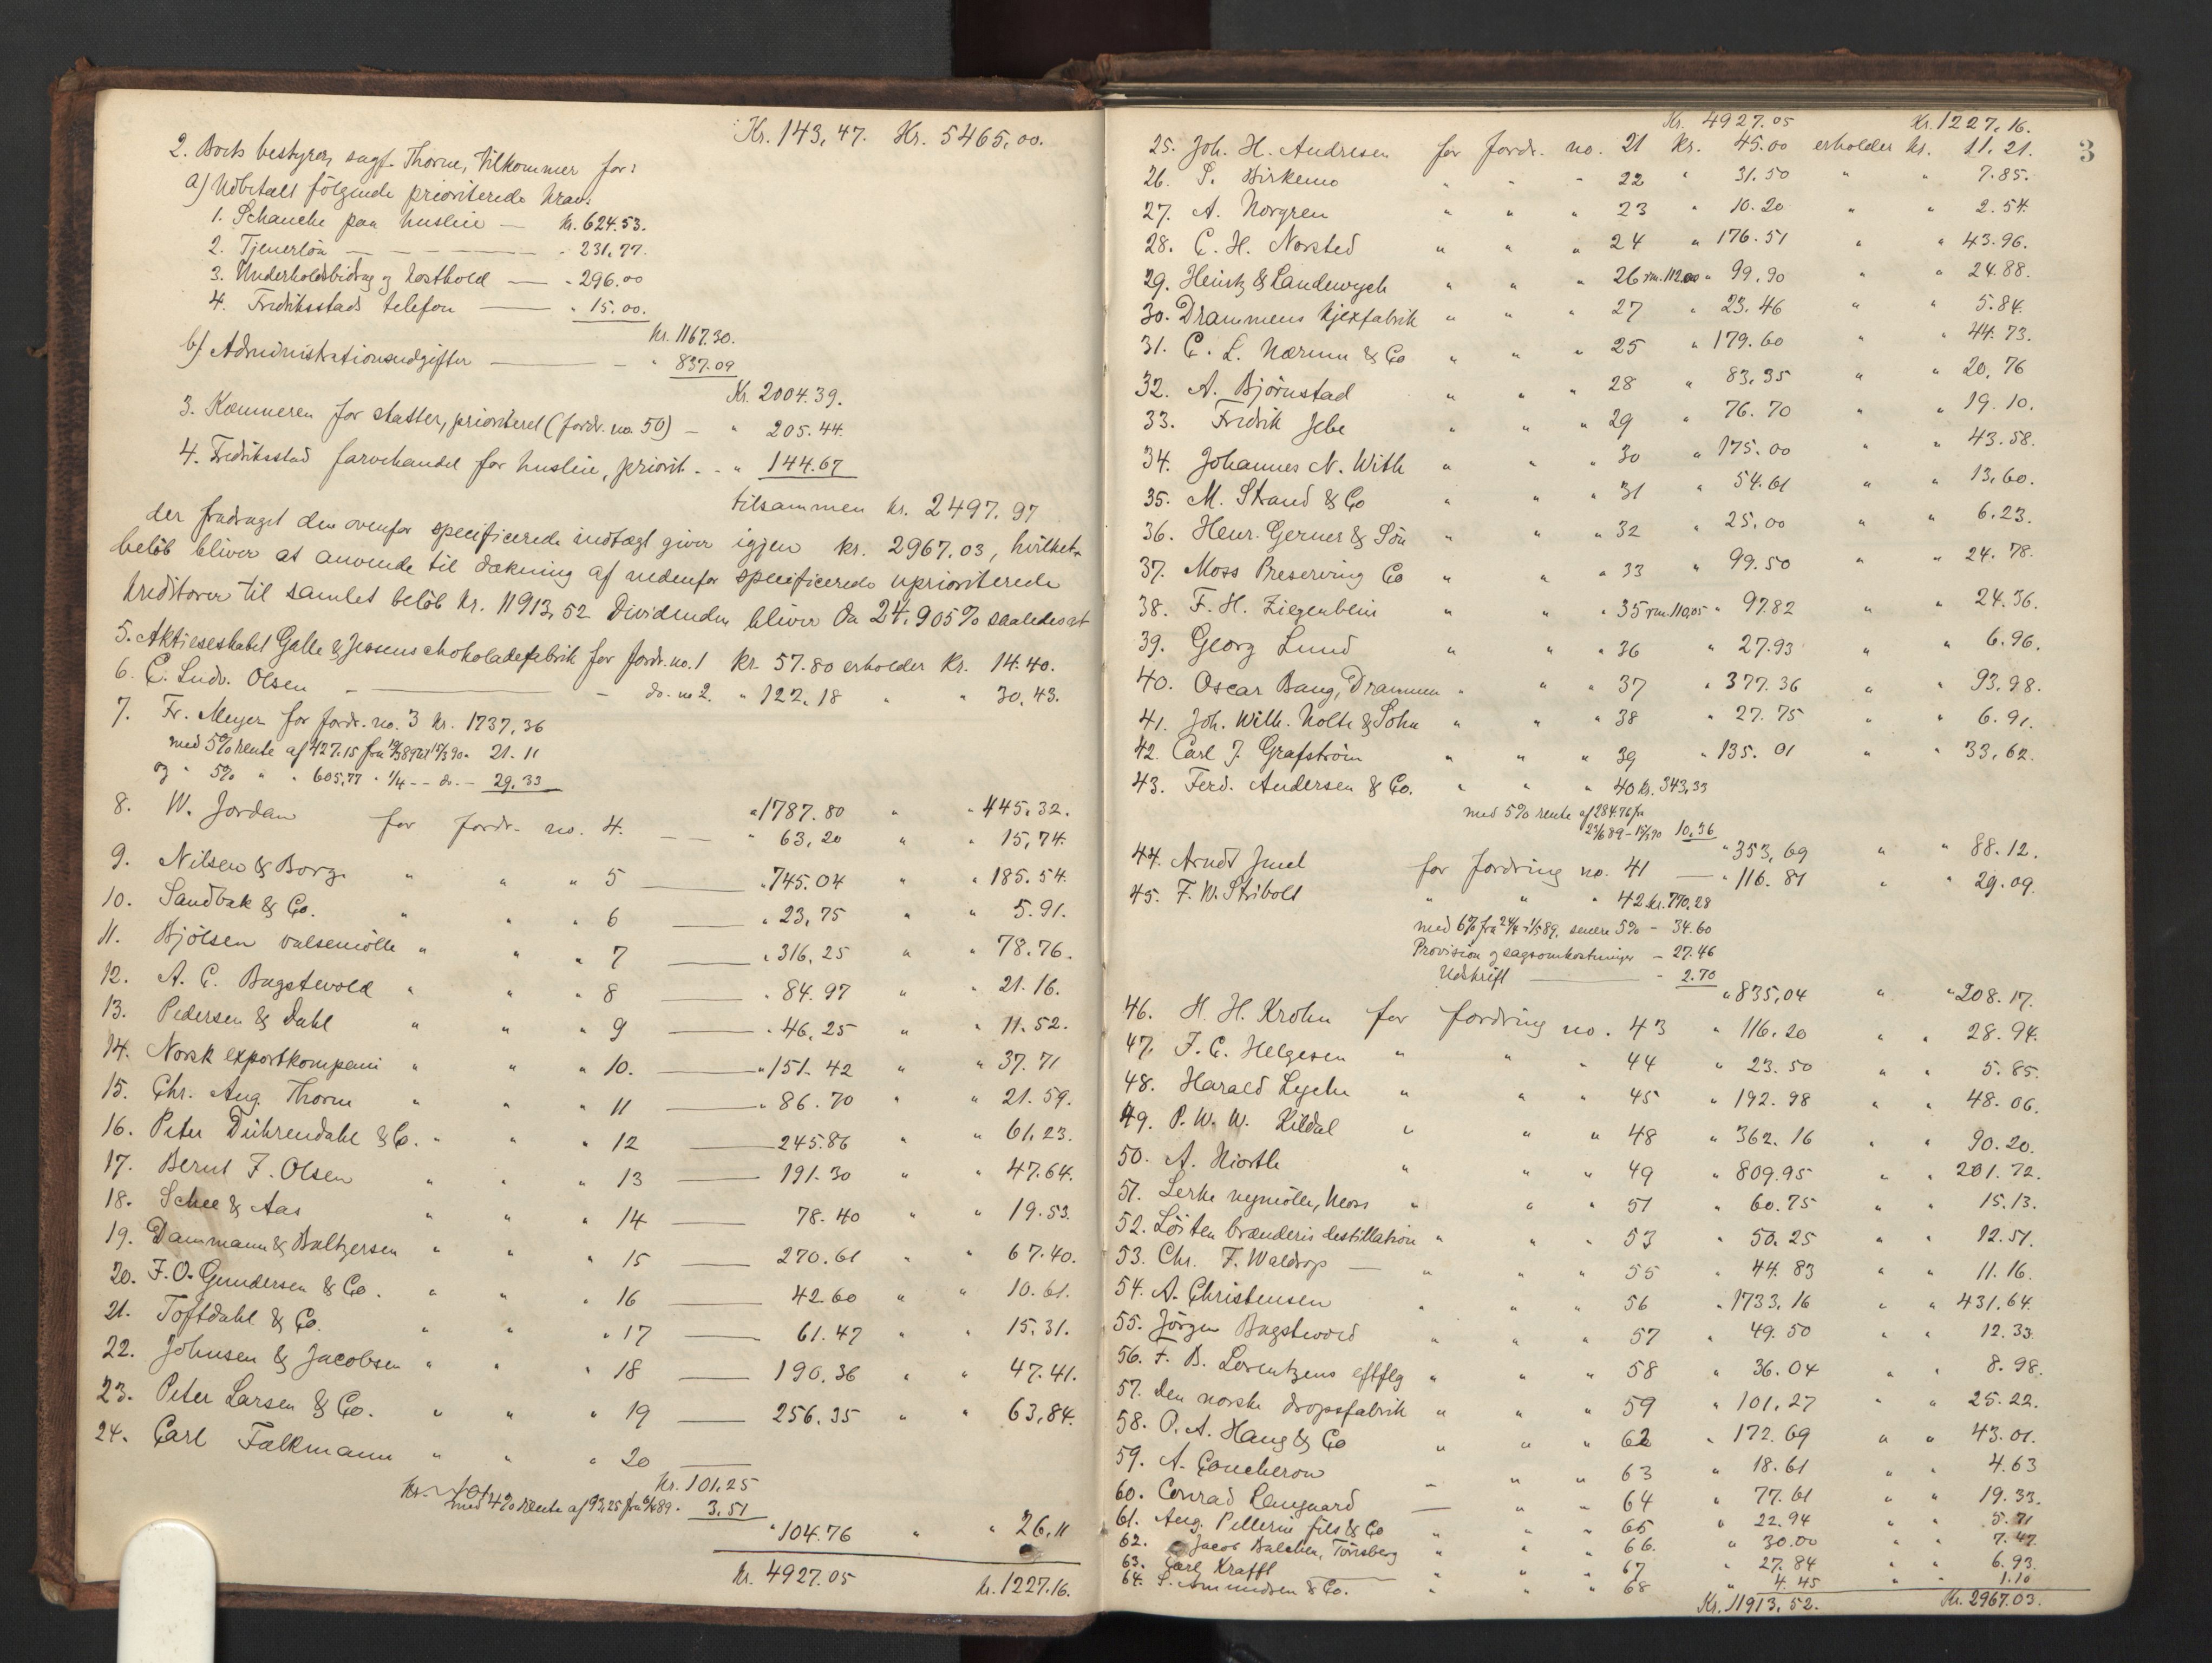 Kr. 143,47. Kr. 5465,00.
2. Boets bestyrer, sagf. Thorne, tilkommer for:
a) Udbetalt følgende prioriterede krav:
1. Schanche paa husleie — kr. 624.53.
2. Tjenerløn — - 231.77.
3. Underholdsbidrag og kosthold — - 296.00
4. Fredriksstads telefon — " 15.00.
kr. 1167.30.
b) Administrationsudgifter — " 837.09
Kr. 2004.39.
3. Kæmneren for skatter, prioriteret (fordr. no. 50) — " 205.44.
4. Fredriksstad farvehandel for husleie, priorit. - " 144.67
tilsammen kr. 2497.97
der fradraget den ovenfor specificerede indtægt giver igjen kr. 2967.03, hvilket
beløb bliver at anvende til dækning af nedenfor specificerede uprioriterede
kreditorer til samlet beløb kr. 11913,52 Dividenden bliver da 24,905% saaledes at
5. Aktieselskabet Galle & Jessens chokoladefabrik for fordr. no. 1 kr. 57.80 erholder kr. 14.40.
6. C. Ludv. Olsen — - do. no 2. " 122.18 " " 30,43.
7. Fr. Meyer for fordr. no. 3 kr. 1737,36
med 5% rente af 427.15 fra 19/3 89 til 15/3 90 - 21.11
og " 5% " " 605,77 " 1/4 - - do. - 29.33
" 1787.80 " " 445,32.
8. W. Jordan for fordr. no. 4. — " 63,20 " " 15,74.
9. Nilsen & Borge " " " 5 — " 745.04 " " 185.54.
10. Sandbak & Co. " " " 6 — " 23,75 " " 5.91.
11. Bjølsen valsemølle " " " 7 — " 316,25 " " 78.76.
12. A. C. Bugstevold " " " 8 — " 84.97 " " 21.16.
13. Pedersen & Dahl " " " 9 — " 46,25 " " 11.52.
14. Norsk exportkompani " " " 10. — " 151.42 " " 37.71
15. Chr. Aug. Thorne " " " 11 — " 86.70 " " 21.59.
16. Peter Dührendahl & Co. " " " 12 — 245.86 " " 61,23.
17. Bernt F. Olsen " " " 13 — 191.30 " " 47.64.
18. Schee & Aas " " " 14 — 78.40 " " 19.53.
19. Dammann & Baltzersen " " " 15 — 270.61 " " 67.40.
20. F. O. Gundersen & Co. " " " 16 — 42.60 " " 10.61.
21. Toftdahl & Co. " " " 17 — 61.47 " " 15,31.
22. Johnsen & Jacobsen " " " 18 — 190,36 " " 47.41.
23. Peter Larsen & Co. " " " 19 — 256.35 " " 63,84.
24. Carl Falkmann " " " 20 —
Kr. 101,25
med 4% rente af 93,25 fra 89 - 3,51
" 104.76 " " 26,11
Kr. 4927.05 kr. 1227.16.
3
Kr. 4927.05 Kr. 1227,16.
25. Joh. H. Andresen for fordr. no. 21 kr. 45.00 erholder kr. 11.21.
26. S. Birkemo " " " 22 " 31.50 " " 7.85.
27. A. Norgren " " " 23 " 10.20 " " 2.54.
28. C. H. Norsted " " " 24 " 176.51 " " 43.96.
29. Heintz & Landewyck " " " 26 rm. 112.00 " 99,90 " " 24.88.
30. Drammens kjexfabrik " " " 27 " 23.46 " " 5.84.
31. C. L. Nærum & Co " " " 25 " 179.60 " " 44.73.
32. A. Bjørnstad " " " 28 " 83,35 " " 20,76
33. Fredrik Jebe " " " 29 " 76.70 " " 19.10.
34. Johannes N. With " " " 30 " 175.00 " " 43.58.
35. M. Strand & Co " " " 31 " 54.61 " " 13,60.
36. Henr. Gerner & Søn " " " 32 " 25,00 " " 6,23.
37. Moss Preserving Co " " " 33 " 99.50 " " 24.78.
38. F. H. Ziegenbein " " " 35 rm. 110,05 " 97.82 " " 24.36.
39. Georg Lund " " " 36 " 27.93 " " 6.96.
40. Oscar Bang, Drammen " " " 37 " 377.36 " " 93,98.
41. Joh. Wilh. Nolte & Sohn " " " 38 " 27.75 " " 6.91.
42. Carl J. Grafstrøm " " " 39 " 135.01 " " 33,62.
43. Ferd. Andersen & Co. " " " 40 kr. 343,33
med 5% rente af 284.76 fra
89 - 15/3 90 10,36
" 353,69 " " 88.12.
44. Arndt Juul for fordring no. 41 — " 116.81 " " 29.09.
45. F. W. Stribolt " " " 42 kr. 770,28
med 6% fra 89, senere 5% - 34.60
Provision og sagsomkostninger - 27.46
Udskrift — - 2.70
" 835,04 " " 208.17.
46. H. H. Krohn for fordring no. 43 " 116.20 " " 28.94.
47. J. C. Helgesen " " " 44 " 23.50 " " 5.85.
48. Harald Lyche " " " 45 " 192.98 " " 48.06.
49. P. W. W. Kildal " " " 48 " 362.16 " " 90.20.
50. A. Hiorth " " " 49 " 809.95 " " 201.72.
51. Lerke nymølle, Moss " " " 51 " 60.75 " " 15.13.
52. Løiten brænderis destillation " " " 53 " 50.25 " " 12.51.
53. Chr. F. Waldrop — " " " 55 " 44.83 " " 11.16.
54. A. Christensen " " " 56 " 1733,16 " " 431.64.
55. Jørgen Bugstevold " " " 57 " 49.50 " " 12.33.
56. F. B. Lorentzens eftflg " " " 58 " 36.04 " " 8.98.
57. Den norske dropsfabrik " " " 59 " 101,27 " " 25.22.
58. P. A. Haug & Co " " " 62 " 172.69 " " 43.01.
59. A. Coucheron " " " 63 " 18.61 " " 4.63
60. Conrad Langaard — " " 64 " 77.61 " " 19.33.
61. Aug. Pellerin fils & Co " " " 65 " 22.94 " " 5.71
62. Jacob Balchen, Tønsberg " " " 66. " 30.00 " " 7.47.
63. Carl Krafft — " " 67 " 27.84 " " 6.93.
64. S. Amundsen & Co. " " " 68 " 4.45 " " 1.10
Kr. 11913,52. Kr. 2967.03.